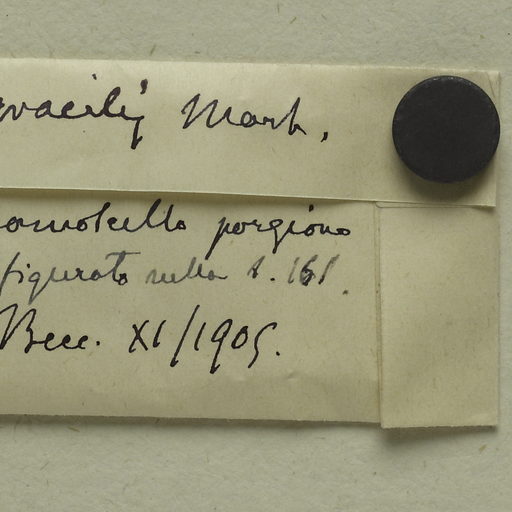 gracilis Mart.
ramoscello porzione
figurato nella t. 161.
Becc. XI/1905.